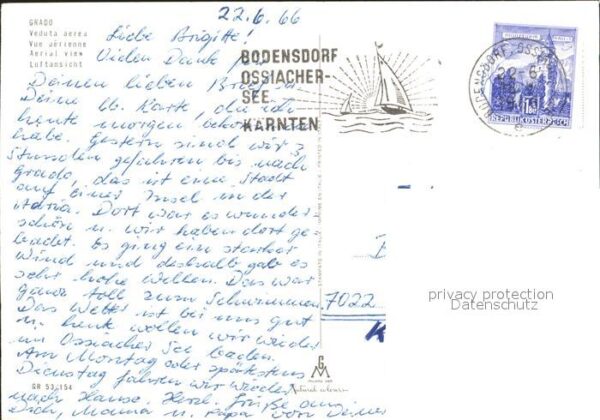 22.6.66
GRADO
Veduta aerea
Vue aérienne
Aerial View
Luftansicht
Liebe Brigitte!
Vielen Dank für
Deinen lieben Brief u.
Deine lb. Karte, die ich
heute morgen bekommen
habe. Gestern sind wir 3
Stunden gefahren bis nach
Grado, das ist eine Stadt
auf einer Insel in der
Adria. Dort war es wunder
schön u. wir haben dort ge
badet. Es ging ein starker
Wind und deshalb gab es
sehr hohe Wellen. Das war
ganz toll zum Schwimmen.
Das Wetter ist bei uns gut
u. heute wollen wir wieder
im Ossiacher See baden.
Am Montag oder spätestens
Dienstag fahren wir wieder
nach Hause. Herzl. Grüße an
Dich, Mama u. Papa von Deiner
GR 53/154
BODENSDORF
OSSIACHER-
SEE
KÄRNTEN
BODENSDORF, OSSIACH
22-6
REPUBLIK ÖSTERREICH
7022
privacy protection
Datenschutz